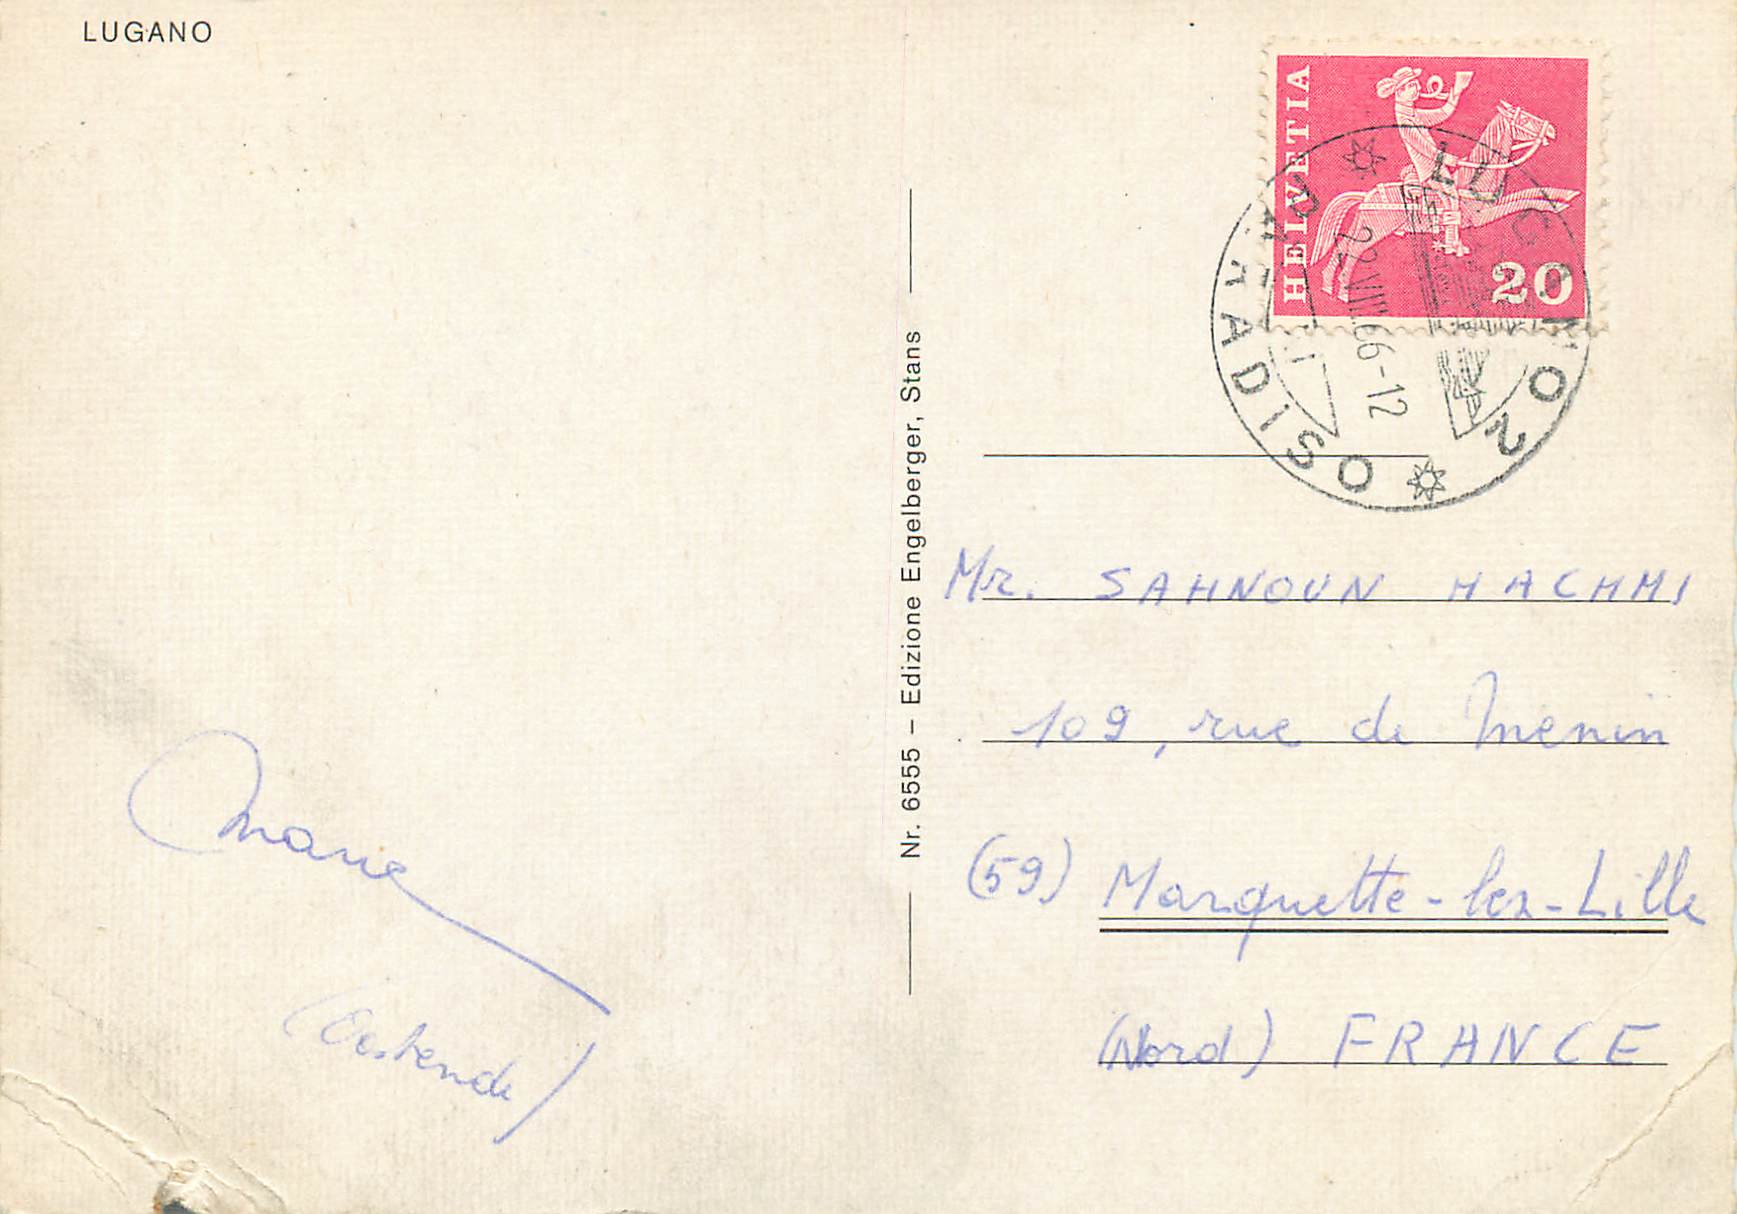 LUGANO
Marie
(Oostende)
Nr. 6555 – Edizione Engelberger, Stans
HELVETIA
20
LUGANO 2
PARADISO
22.VIII.66-12
Mr. SAHNOUN HACHMI
109, rue de Menin
(59) Marquette-lez-Lille
(Nord) FRANCE